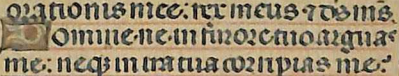 orationis mee: rex meus ⁊ ds ms.
Domine ne in furore tuo arguas
me: neq; in ira tua corripias me.